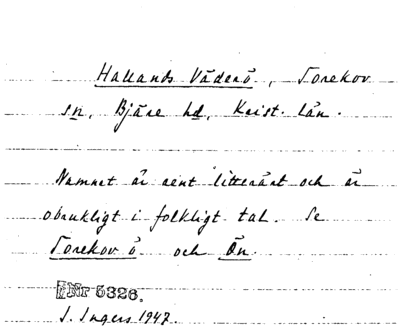 Hallands Väderö, Torekov
sn, Bjäre hd, Krist. län.
Namnet är rent litterärt och är
obrukligt i folkligt tal. Se
Torekov ö och Ön.
Nr 5326.
I. Ingers 1947.